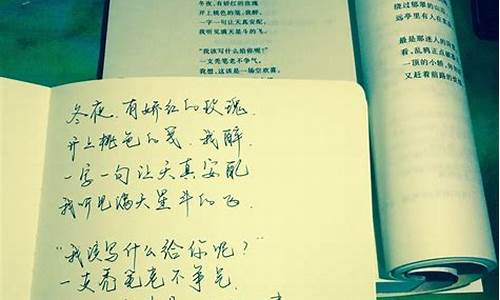 冬夜,有娇红的玫瑰
开上桃色的笺,我醉,
一字一句让天真安配,
我听见满天星斗的飞。
“我该写什么给你呢?”
一支秃笔老不争气。
我想,这该是一场空欢喜。
绕过郁郁的山
远亭里有人在
最是那迷人的
看,乱鸦正点
一顶的小轿,
又赶着前路的
冬夜,有娇红的玫瑰,
开上桃色的笺,我醉,
一字一句让天真安配
我听见满天星斗的飞.
“我该写什么给你呢?”
一支秃笔老不争气.